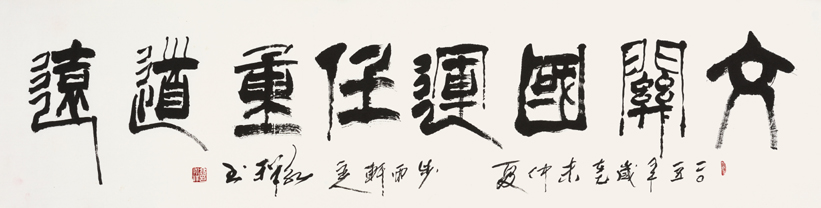 文關國運任重道遠
二〇一五年歲在乙未仲夏 雨軒